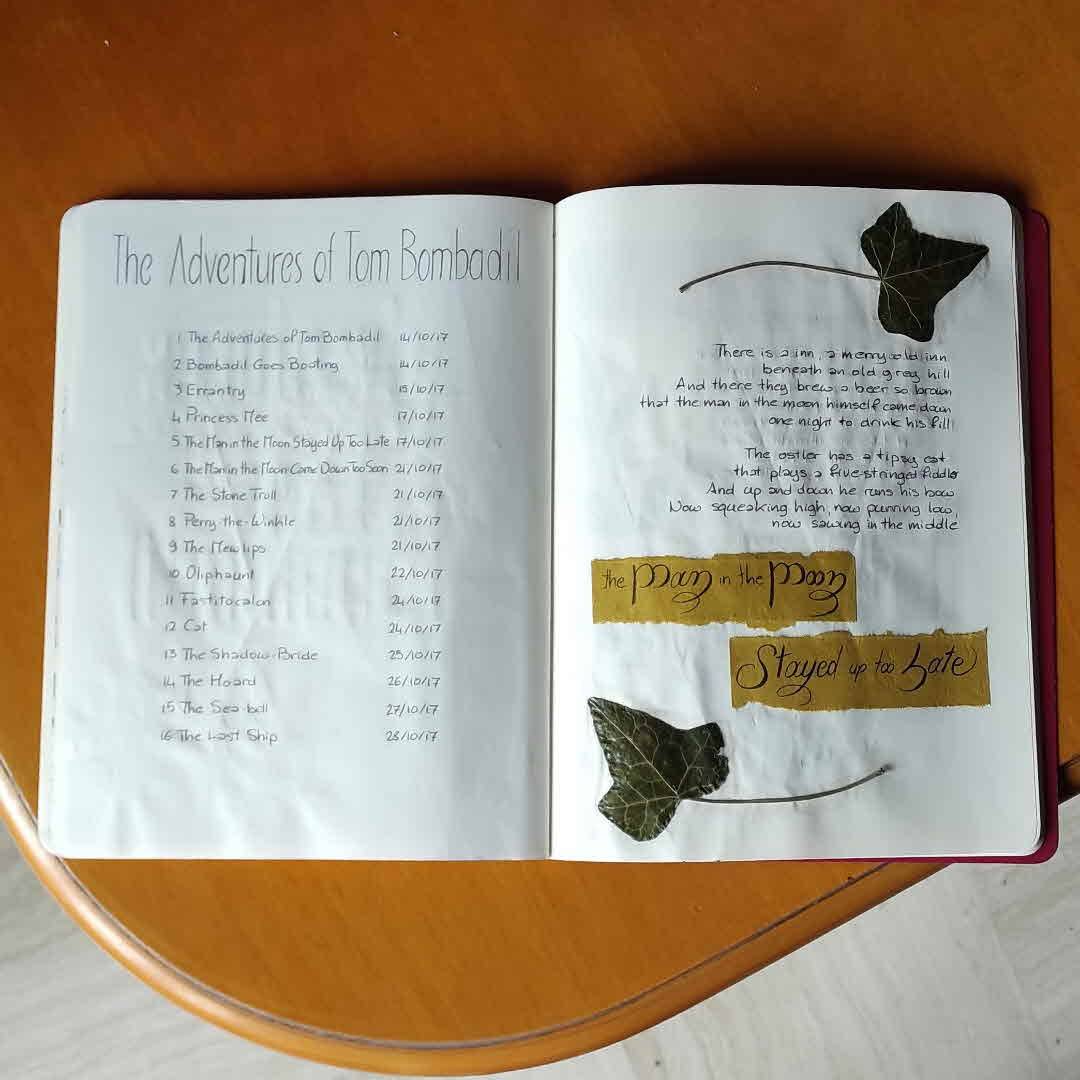 The Adventures of Tom Bombadil
1 The Adventures of Tom Bombadil 14/10/17
2 Bombadil Goes Boating 14/10/17
3 Errantry 15/10/17
4 Princess Mee 17/10/17
5 The Man in the Moon Stayed Up Too Late 17/10/17
6 The Man in the Moon Came Down Too Soon 21/10/17
7 The Stone Troll 21/10/17
8 Perry-the-Winkle 21/10/17
9 The Mewlips 21/10/17
10 Oliphaunt 22/10/17
11 Fastitocalon 24/10/17
12 Cat 24/10/17
13 The Shadow-Bride 25/10/17
14 The Hoard 26/10/17
15 The Sea-bell 27/10/17
16 The Last Ship 28/10/17
There is a inn, a merry old inn
beneath an old grey hill
And there they brew a beer so brown
that the man in the moon himself came down
one night to drink his fill
The ostler has a tipsy cat
that plays a five-stringed fiddle
And up and down he runs his bow
Now squeaking high, now purring low,
now sawing in the middle
the Man in the Moon
Stayed up too Late